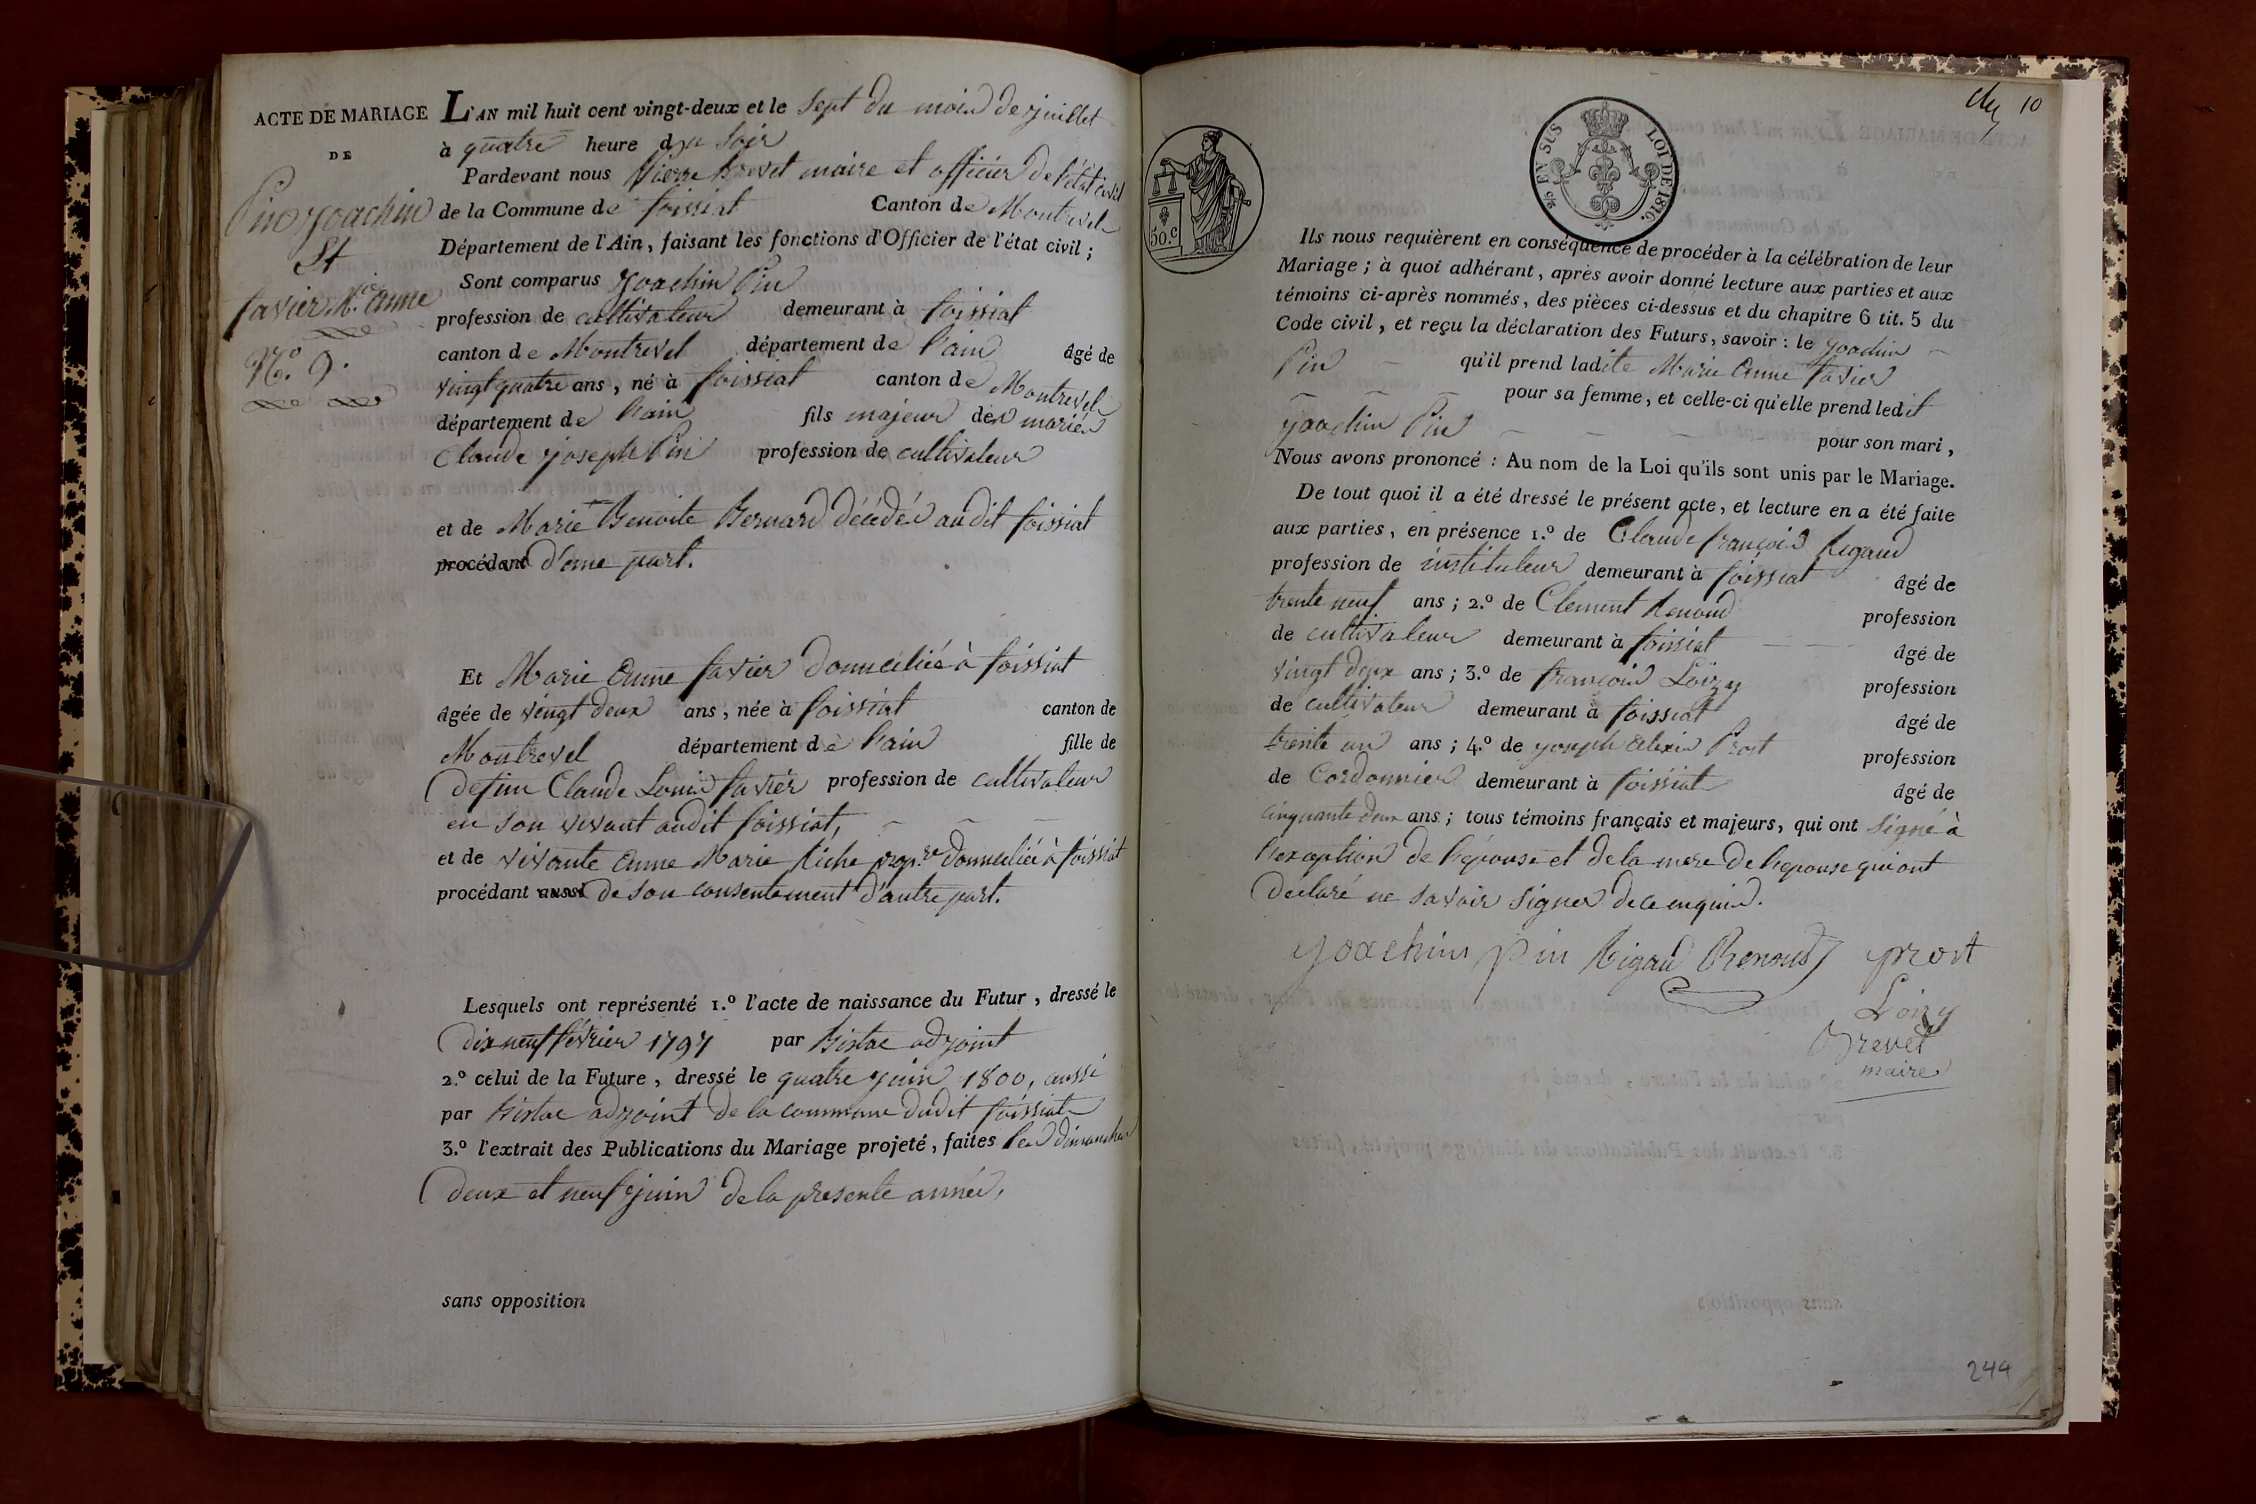 ACTE DE MARIAGE
DE
Pin Joachin
Et
favier Mie anne
No. 9.
L'AN mil huit cent vingt-deux et le sept du mois de juillet
à quatre heure du soir
Pardevant nous pierre Brevet maire et officier de l'état civil
de la Commune de foissiat Canton de Montrevel
Département de l'Ain, faisant les fonctions d'Officier de l'état civil ;
Sont comparus Joachin Pin
profession de cultivateur demeurant à foissiat
canton de Montrevel département de l'ain âgé de
vingt quatre ans, né à foissiat canton de Montrevel
département de l'ain fils majeur des mariés
Claude joseph Pin profession de cultivateur
et de Marie Benoite Bernard décédés audit foissiat
procédant d'une part.
Et Marie Anne favier domiciliée à foissiat
âgée de vingt deux ans, née à foissiat canton de
Montrevel département de l'ain fille de
defunt Claude Louis favier profession de cultivateur
en son vivant audit foissiat,
et de vivante Anne Marie Riche propre domiciliée à foissiat
procédant aussi de son consentement d'autre part.
Lesquels ont représenté 1.º l'acte de naissance du Futur, dressé le
dix neuf février 1797 par adjoint
2.º celui de la Future, dressé le quatre juin 1800, aussi
par adjoint de la commune dudit foissiat
3.º l'extrait des Publications du Mariage projeté, faites les dimanches
deux et neuf juin de la presente année,
sans opposition
10
50.c
EN SUS
LOI DE 1816.
Ils nous requièrent en conséquence de procéder à la célébration de leur
Mariage ; à quoi adhérant, après avoir donné lecture aux parties et aux
témoins ci-après nommés, des pièces ci-dessus et du chapitre 6 tit. 5 du
Code civil, et reçu la déclaration des Futurs, savoir : le Joachin
Pin qu'il prend ladite Marie Anne favier
pour sa femme, et celle-ci qu'elle prend ledit
Joachin Pin pour son mari,
Nous avons prononcé : Au nom de la Loi qu'ils sont unis par le Mariage.
De tout quoi il a été dressé le présent acte, et lecture en a été faite
aux parties, en présence 1.º de Claude françois Rigaud
profession de instituteur demeurant à foissiat âgé de
trente neuf ans ; 2.º de Clement Renoud profession
de cultivateur demeurant à foissiat âgé de
vingt deux ans ; 3.º de françois Loizy profession
de cultivateur demeurant à foissiat âgé de
trente un ans ; 4.º de joseph Alexis Prost profession
de Cordonnier demeurant à foissiat âgé de
cinquante deux ans ; tous témoins français et majeurs, qui ont signé à
l'exception de l'épouse et de la mere de l'epouse qui ont
declaré ne savoir signer de ce enquis.
Joachin pin Rigaud Renoud prost
Loizy
Brevet
maire
244